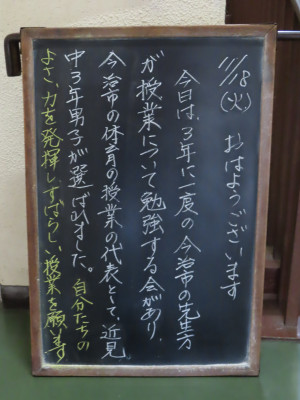 11/18(火) おはようございます
今日は、3年に一度の今治市の先生方
が授業について勉強する会があり、
今治市の体育の授業の代表として、近見
中3年男子が選ばれました。自分たちの
よさ、力を発揮しすばらしい授業を願います